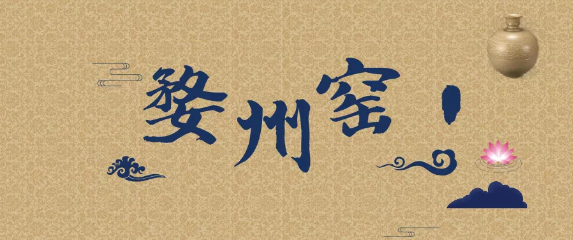 婺州窑